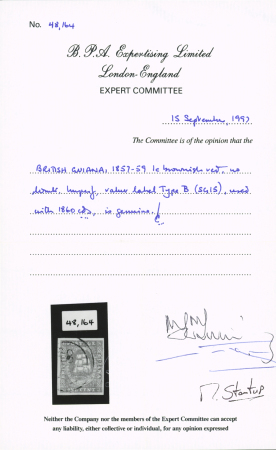 No. 48,164
B. P. A. Expertising Limited
London-England
EXPERT COMMITTEE
15 September, 1997
The Committee is of the opinion that the
BRITISH GUIANA: 1857-59 1c brownish red, no
wmk, Imperf, value label Type B (SG15), used
with 1860 cds, is genuine.
48,164
M. Startup
Neither the Company nor the members of the Expert Committee can accept
any liability, either collective or individual, for any opinion expressed